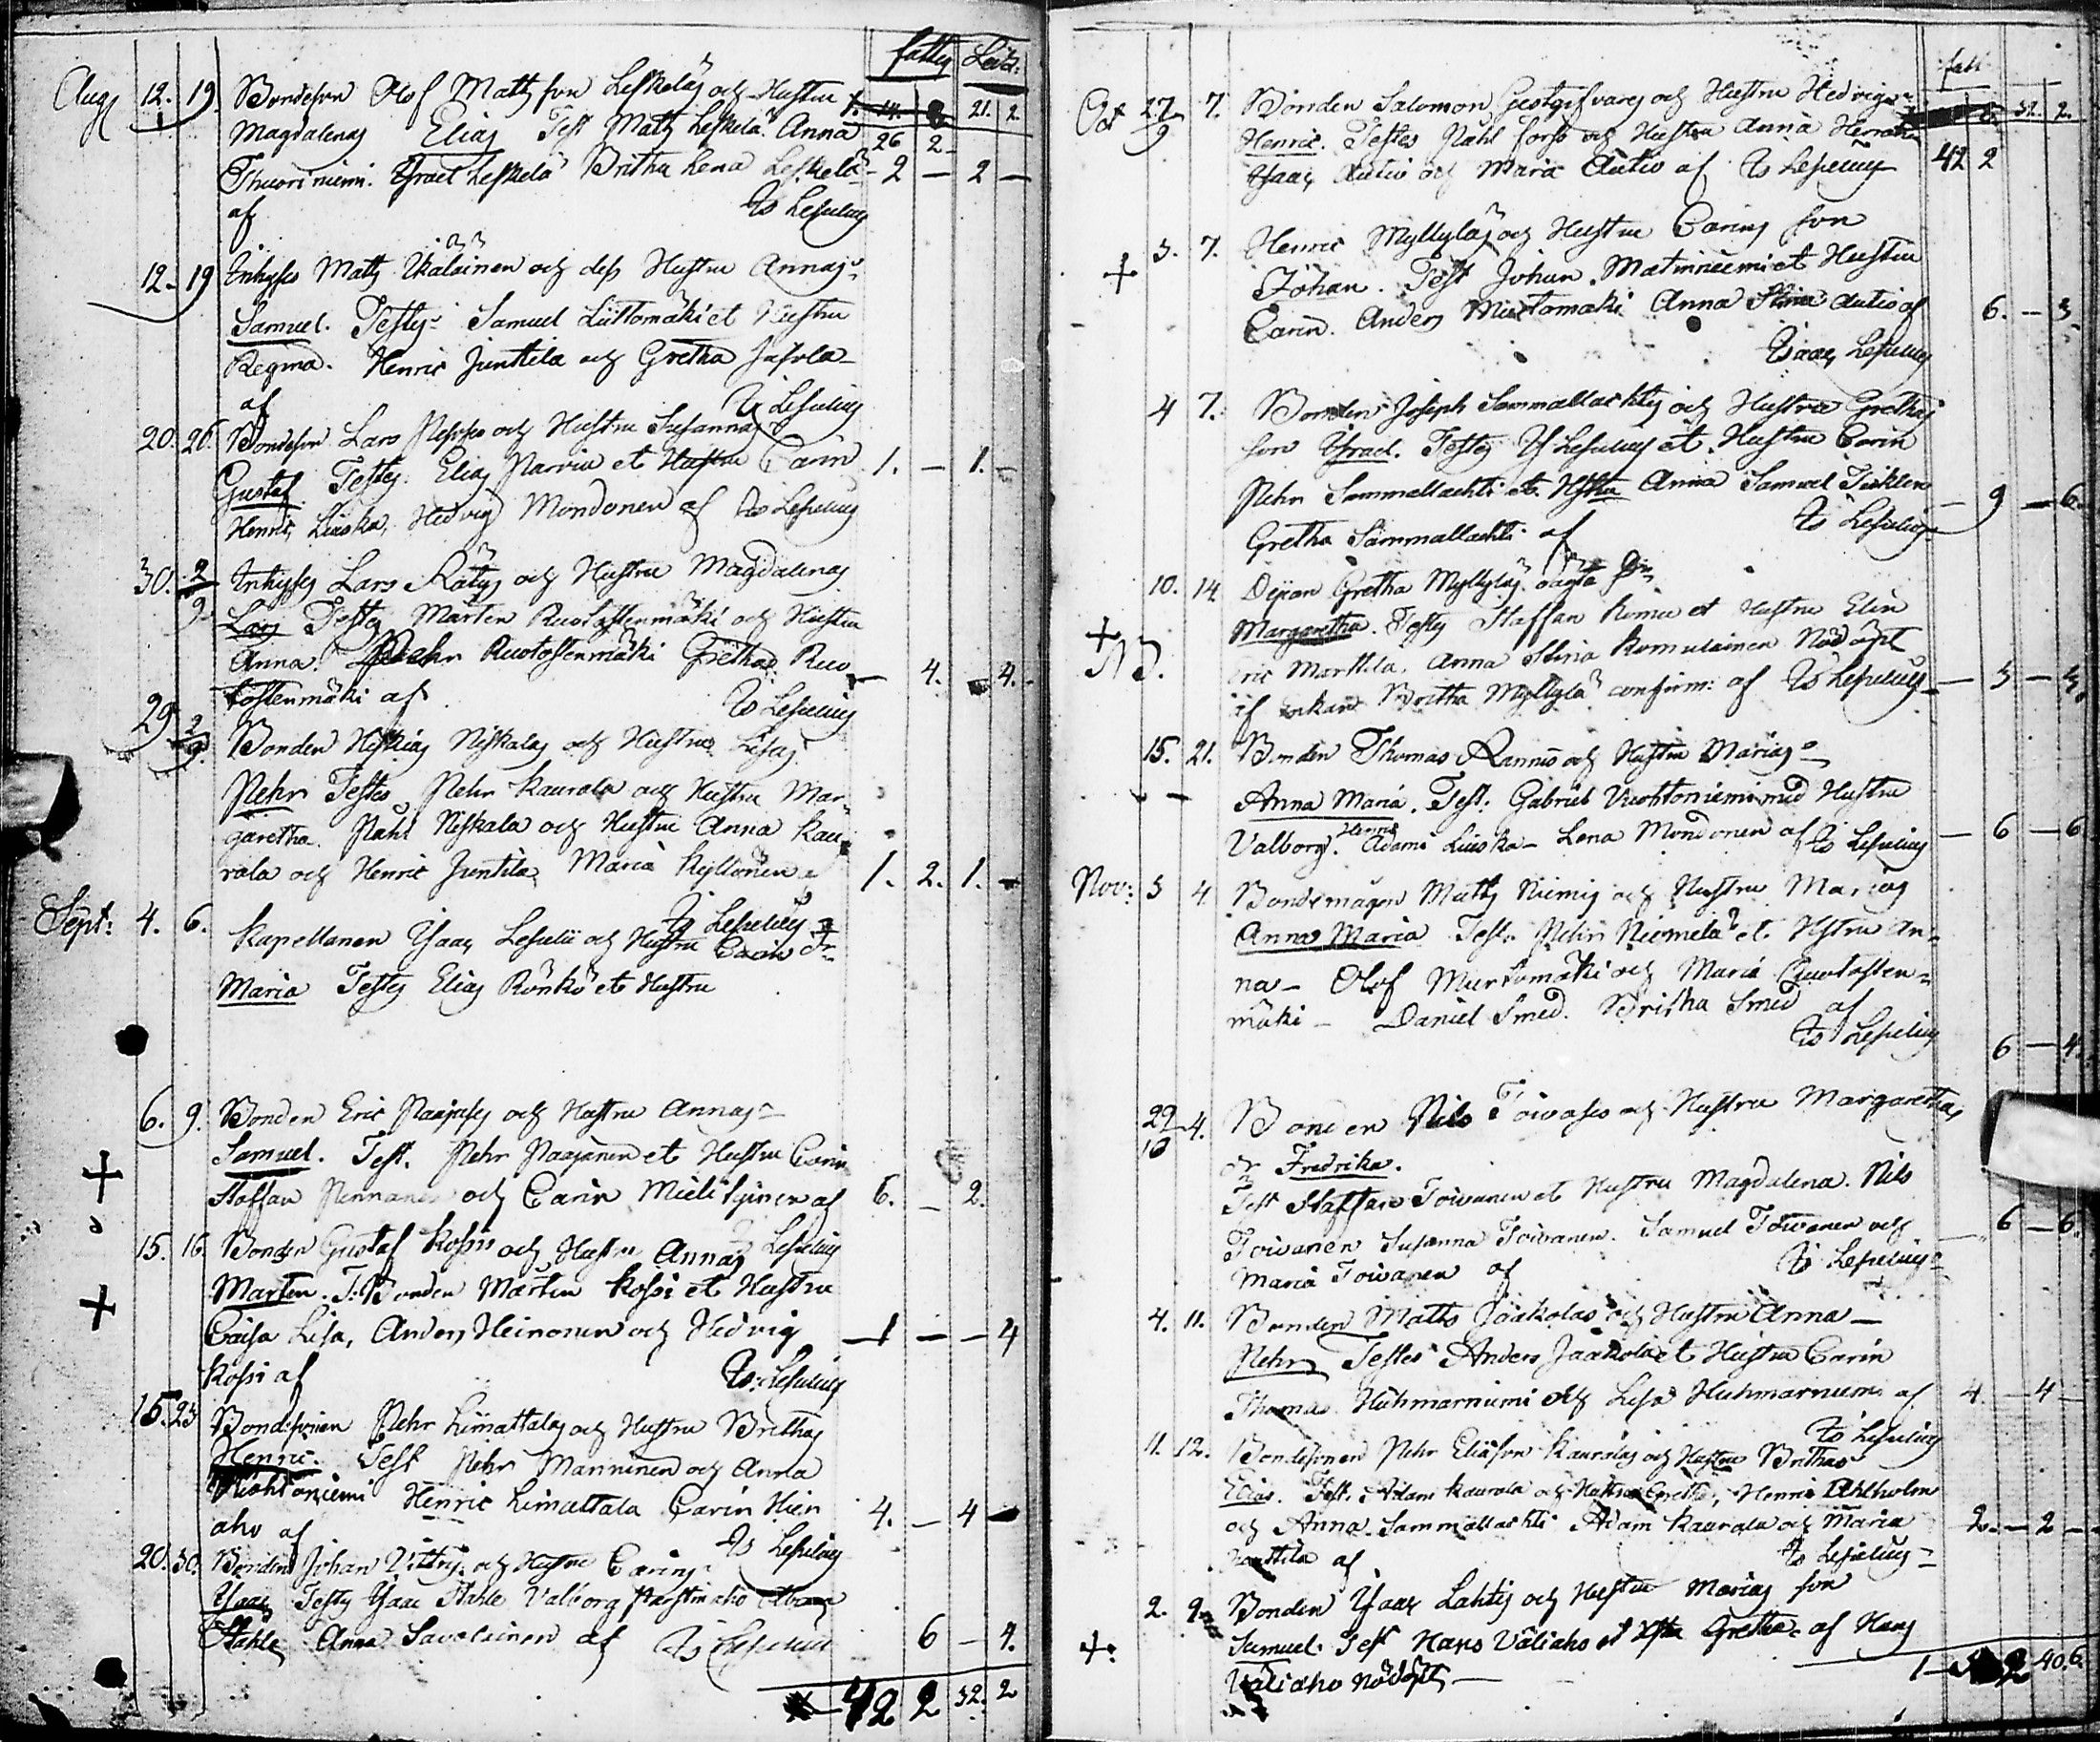 fattig Led:
Aug 12. 19. Bondeson Olof Mattson Leskeläs och Hustru 21. 2
Magdalenas Elias Test Matts Leskelä. Anna 26 2
Thuoriniemi. Ysrael Leskelä Britha Lena Leskelä 2 — 2 —
af Is Leseliug
12. 19 Inhyses Matts Ukäläinen och dess Hustru Annas
Samuel. Testes Samuel Luttomäki et Hustru
Regina. Henric Junttila och Gretha
af Is Leseliug
20. 26. Bondeson Lars och Hustru Susannas
Gustaf Testes. Elias Parvia et Hustru Carin 1. — 1. —
Henric Liuska, Hedvig Mondonen af Is Leseliug
30. 2/9 Inhyses Lars Rätys och Hustru Magdalenas
Lars Testes Mårten Ruotostenmäki och Hustru
Anna. Pehr Ruotostenmäki Gretha Ruo — 4. 4.
tostenmäki af Is Leseliug
29 2/9. Bonden Niskalas och Hustru Lisas
Pehr Testes Pehr Kaurala och Hustru Mar-
garetha. Påhl Niskala och Hustru Anna Kau
rala och Henric Juntila Maria Kyllönen 1. 2. 1. —
Is Leseliug
Sept: 4. 6. Kapellanen Ysaac och Hustru Dr
Maria Testes Elias Rönkö et Hustru
6. 9. Bonden Eric och Hustru Annas
Samuel. Test. Pehr Paajanen et Hustru Carin
Staffan Pennanen och Carin af 6. — 2.
15. 16. Bonden Gustaf Kossis och Hustru Annas Leseliug
Mårten. T: Bonden Mårten Kossi et Hustru
Caisa Lisa, Anders Heinonen och Hedvig — 1 — — 4
Kossi af Is: Leseliug
15. 23 Bondesonen Pehr Limattalas och Hustru Brithas
Henric. Test Pehr Manninen och Anna
Henric Limattala Carin Hien 4. — 4 —
aho af Is Leseliug
20. 30. Bonden Johan och Hustru Carins
Ysaac Testes Ysaac Ståhle Valborg
Ståhle Anna Savolainen af Is Leseliug 6 — 4.
42 2 32. 2
fatt
Oct 27/9 7. Bonden Salomon Gestgifvares och Hustru Hedvigs 32. 2.
Henric. Testes Påhl Forss och Hustru Anna
Ysaac Autio och Maria Autio af Is Leseliug 42 2
3. 7. Henric Myllyläs och Hustru Carins son
Johan. Test Johan Matinniemi et Hustru
Carin. Anders Murtomäki Anna Stina Autio af 6. — 3.
Isaac Leseliug
4 7. Bonden Joseph Sammallachtis och Hustru Grethas
son Ysrael. Testes Ys Leseliug et Hustru Carin
Pehr Sammallachti et Hstru Anna Samuel — 9 — 6.
Gretha Sammallachti af Is Leseliug
10. 14. Pijan Gretha Myllyläs oägta
Margaretha. Testes Staffan et Hustru Elin
NB. ric Marttila. Anna Stina Komulainen Nöddöpt
af enkan Britha Myllylä confirm: af Is Leseliug — 3 — 3.
15. 21. Bonden Thomas Rannis och Hustru Marias
Anna Maria. Test: Gabriel Vuohtoniemi med Hustru
Valborg. Henric Adams Liuska — Lena Mondonen af Is Leseliug — 6 — 6
Nov: 3 4. Bondemågen Matts Niemis och Hustru Marias
Anna Maria Test. Pehr Niemelä et Hstru An-
na — Olof Murtomäki och Maria Ruotosten-
mäki — Daniel Smed. Britha Smed af
Is Leseliug 6 — 4.
29/10 4. Bonden Nils Toivases och Hustru Margarethas
dr Fredrika.
Test Staffan Toivanen et Hustru Magdalena. Nils
Toivanen Susanna Toivanen. Samuel Toivanen och — 6 — 6.
Maria Toivanen af Is Leseliug
4. 11. Bonden Matts Jaakolas och Hustru Anna —
Pehr Testes Anders Jaakola et Hustru Carin
Thomas Huhmarniemi och Lisa Huhmarniemi af 4 — 4 —
Is Leseliug
11. 12. Bondesonen Pehr Eliasson Kauralas och Hustru Brithas
Elias. Test. Adam Kaurala och Hustru Gretha, Henric Ahlholm
och Anna Sammallachti Adam Kaurala och Maria 2. — 2 —
af Is Leseliug
2. 9. Bonden Ysaac Lahtis och Hustru Marias son
Samuel. Test Hans Väliaho et Hstru Gretha. af Hans
Väliaho nöddöpt — 40. 6.